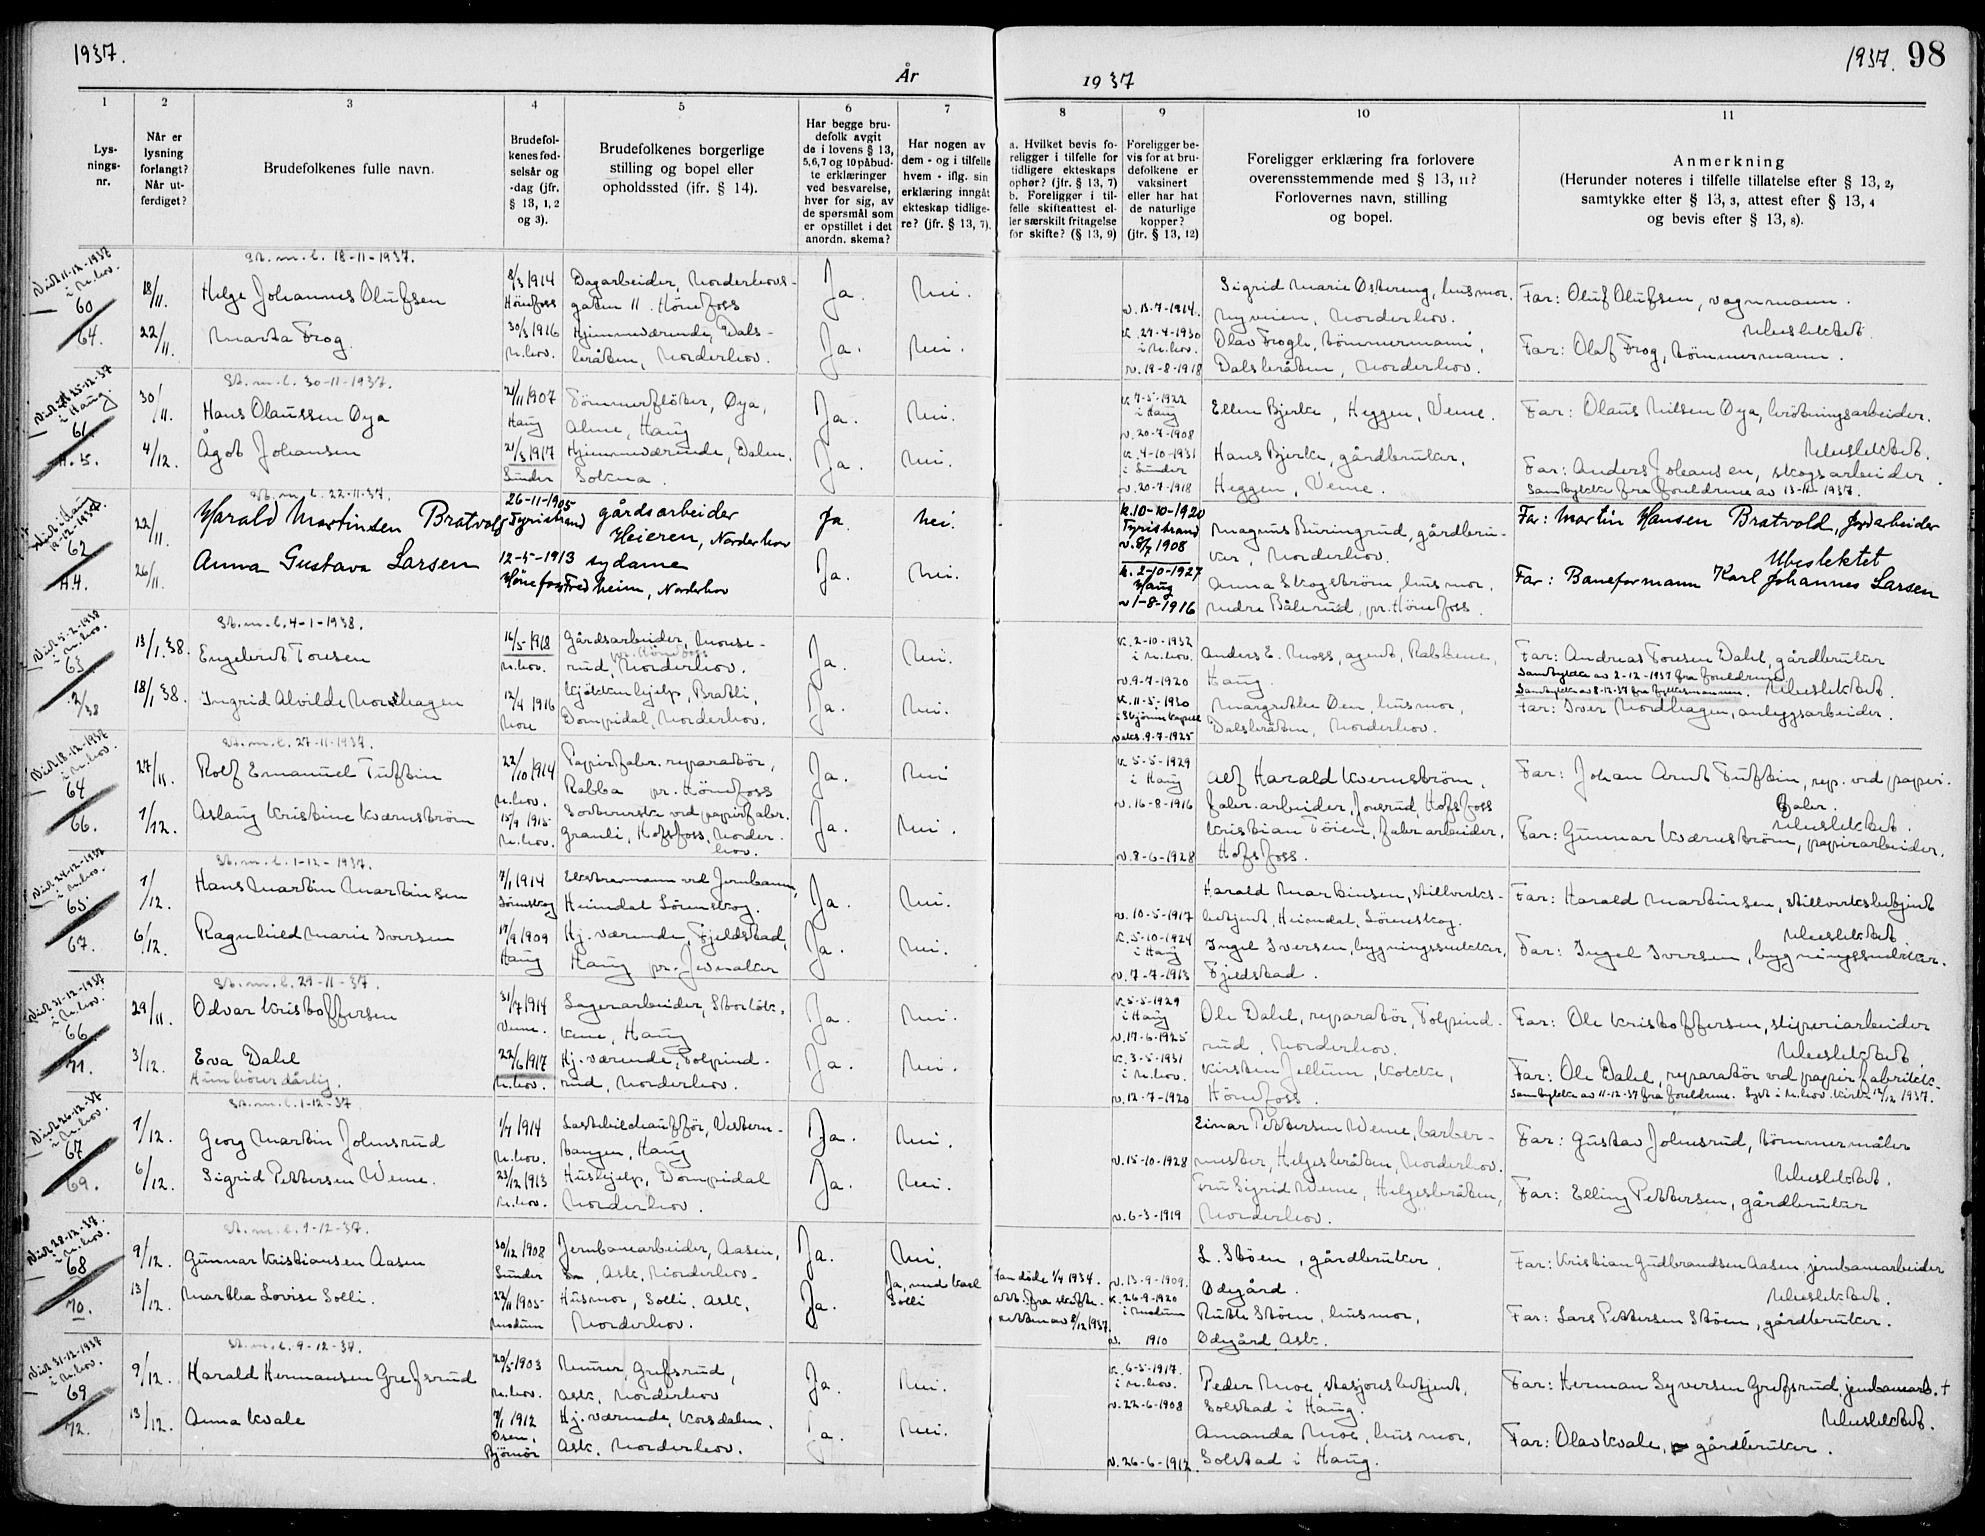 1937.
År
1937
1937. 98
1
Lys-
nings-
nr.
2
Når er
lysning
forlangt?
Når ut-
ferdiget?
3
Brudefolkenes fulle navn.
4
Brudefol-
kenes fød-
selsår og
-dag (jfr.
§ 13, 1, 2
og 3).
5
Brudefolkenes borgerlige
stilling og bopel eller
opholdssted (ifr. § 14).
6
Har begge bru-
defolk avgit
de i lovens § 13,
5, 6, 7 og 10 påbud-
te erklæringer
ved besvarelse,
hver for sig, av
de spørsmål som
er opstillet i det
anordn. skema?
7
Har nogen av
dem - og i tilfelle
hvem - iflg. sin
erklæring inngåt
ekteskap tidlige-
re? (jfr. § 13, 7).
8
a. Hvilket bevis fo-
religger i tilfelle for
tidligere ekteskaps
ophør? (jfr. § 13, 7)
b. Foreligger i til-
felle skifteattest el-
ler særskilt fritagelse
for skifte? (§ 13, 9)
9
Foreligger be-
vis for at bru-
defolkene er
vaksinert
eller har hat
de naturlige
kopper?
(jfr. § 13, 12)
10
Foreligger erklæring fra forlovere
overensstemmende med § 13, 11?
Forlovernes navn, stilling
og bopel.
11
Anmerkning
(Herunder noteres i tilfelle tillatelse efter § 13, 2,
samtykke efter § 13, 3, attest efter § 13, 4
og bevis efter § 13, 8).
Viet 11-12-1937
i N.hov.
60
64.
St. m. l. 18-11-1937.
18/11. Helge Johannes Olufsen
8/3 1914
Hönefoss
Dagarbeider, Norderhovs-
gaten 11. Hönefoss
Ja. Nei.
v. 13-7-1914.
Sigrid Marie Østereng, husmor.
Nyveien, Norderhov.
Far: Oluf Olufsen, vognmann.
Ubeslektet.
22/11. Marta Frog
30/3 1916
N.hov.
Hjemmeværende, Dals-
bråten, Norderhov.
Ja. Nei.
K. 27-4-1930
i N.hov.
v. 19-8-1918
Olav Frogh, tömmermann,
Dalsbråten, Norderhov.
Far: Olaf Frog, tömmermann.
Viet 25-12-37
i Haug.
61.
H. 5.
St. m. l. 30-11-1937.
30/11. Hans Olaussen Øya
21/11 1907
Haug
Tömmerflöter, Øya,
Alme, Haug
Ja. Nei.
K 7-5-1922
i Haug
v. 20-7-1908
Ellen Bjerke, Heggen, Veme.
Far: Olaus Nilsen Øya, brötningsarbeider.
Ubeslektet.
4/12. Ågot Johansen
21/5 1917
Lunder
Hjemmeværende, Dalen,
Sokna.
Ja. Nei.
K. 4-10-1931
i Lunder
v. 20-7-1918
Hans Bjerke, gårdbruker,
Heggen, Veme.
Far: Anders Johansen, skogsarbeider.
Samtykke fra foreldrene av 13-11-1937.
Viet i Haug
19-12-1937
62
H.4.
St. m. l. 22-11-37.
22/11. Harald Martinsen Bratvold
26-11-1905
Tyristrand
gårdsarbeider
Heieren, Norderhov
Ja. Nei.
k. 10-10-1920
Tyristrand
v. 8/7 1908
Magnus Buringrud, gårdbru-
ker, Norderhov.
Far: Martin Hansen Bratvold, jordarbeider
Ubeslektet
26/11. Anna Gustava Larsen
12-5-1913
Hönefoss
sydame
Fredheim, Norderhov
Ja. Nei.
k. 2-10-1927
Haug
v 1-8-1916
Anna Skogström, husmor,
Nedre Bålerud, pr. Hönefoss.
Far: Baneformann Karl Johannes Larsen
Viet 5-2-1938
i N.hov.
63
2/38
St. m. l. 4-1-1938.
13/1. 38. Engebret Toresen
16/5-1918
N.hov.
Gårdsarbeider, Mouse-
pr. Hönefoss
rud, Norderhov.
Ja. Nei.
K. 2-10-1932
i N.hov.
v. 9-7-1920
Anders E. Moss, agent, Rabbene,
Haug.
Far: Andreas Toresen Dahl, gårdbruker
Samtykke av 2-12-1937 fra foreldrene
Samtykke av 8-12-37 fra fylkesmannen. Ubeslektet.
18/1 38. Ingrid Alvilde Nordhagen
12/4 1916
Nore
Kjökkenhjelp, Bratli,
Dompidal, Norderhov.
Ja. Nei.
K. 11-5-1930
i Skjönne Kapell
vaks. 9-7-1925
Margrethe Øen, husmor,
Dalsbråten, Norderhov.
Far: Iver Nordhagen, anleggsarbeider.
Viet 18-12-1937
i N.hov.
64
66.
St. m. l. 27-11-1937.
27/11. Rolf Emanuel Tuftin
22/10 1914
N.hov.
Papirfabr. reparatör,
Rabba pr. Hönefoss
Ja. Nei
K 5-5-1929
i Haug
v. 16-8-1916
Alf Harald Kvernström,
fabr. arbeider, Jonsrud, Hofsfoss
Far: Johan Arnt Tuftin, rep. ved papir.
fabr.
Ubeslektet.
1/12. Aslaug Kristine Kværnström
15/9 1915
N.hov.
Sorterske ved papirfabr.
Granli, Hofsfoss, Norder-
hov.
Ja. Nei.
v. 8-6-1928
Kristian Töien, fabr arbeider,
Hofsfoss.
Far: Gunnar Kværnström, papirarbeider.
Viet 24-12-1937
i N.hov.
65.
67.
St. m. l. 1-12-1937.
1/12. Hans Martin Martinsen
7/1 1914
Lörenskog
Ekstramann ved Jernbanen,
Heimdal Lörenskog.
Ja. Nei.
v. 10-5-1917
Harald Martinsen, stillverks-
betjent, Heimdal, Lörenskog.
Far: Harald Martinsen, stillverksbetjent
Ubeslektet
6/12. Ragnhild Marie Iversen
17/9 1909
Haug
Hj. værende, Fjeldstad,
Haug pr. Jevnaker
Ja. Nei.
K. 5-10-1924
i Haug
v. 7-7-1913
Ingel Iversen, bygningssnekker,
Fjeldstad.
Far: Ingel Iversen, bygningssnekker.
Viet 31-12-1937
i N.hov.
66.
71.
St. m. l. 29-11-37.
29/11. Odvar Kristoffersen
31/7 1914
Veme.
Lagerarbeider, Storlök-
kene, Haug
Ja. Nei.
K 5-5-1929
i Haug
v. 17-6-1925
Ole Dahl, reparatör, Tolpind-
rud, Norderhov.
Far: Ole Kristoffersen, sliperiarbeider
Ubeslektet.
3/12. Eva Dahl
Hun hörer dårlig.
22/6 1917
N.hov.
Hj. værende, Tolpind-
rud, Norderhov.
Ja. Nei.
K. 3-5-1931
i N.hov.
v. 12-7-1920
Kirsten Jellum, kokke,
Hönefoss.
Far: Ole Dahl, reparatör ved papirfabrikk.
Samtykke av 11-12-37 fra foreldrene. Lyst i N.hov. Kirke 12/12 1937.
Viet 26-12-37
i N.hov.
67
69.
St. m. l. 1-12-37.
1/12. Georg Martin Johnsrud
1/4 1914
N.hov.
Lastebilchaufför, Vestern-
bangen, Haug
Ja. Nei.
v. 15-10-1928
Einar Pettersen Veme, barber-
mester, Helgesbråten, Norderhov.
Far: Gustav Johnsrud, tömmermåler
Ubeslektet.
6/12. Sigrid Pettersen Veme.
23/12 1913
N.hov.
Hushjelp, Dompidal
Norderhov.
Ja. Nei.
v. 6-3-1919
Fru Sigrid Veme, Helgesbråten,
Norderhov.
Far: Elling Pettersen, gårdbruker
Viet 28-12-37.
i N.hov.
68
70.
St. m. l. 9-12-37.
9/12. Gunnar Kristiansen Aasen
30/12 1908
Lunder
Jernbanearbeider, Aasen,
Ask, Norderhov.
Ja. Nei.
v. 13-9-1909.
L. Stöen, gårdbruker,
Odegård.
Far: Kristian Gudbrandsen Aasen, jernbanearbeider
Ubeslektet.
13/12. Martha Lovise Solli.
22/11 1905
Modum
Husmor, Solli, Ask,
Norderhov.
Ja. Ja, med Karl
Solli
Han döde 1/4 1934.
att. fra skifte-
retten av 8/12 1937.
K. 26-9-1920
i Modum
v. 1910
Ruth Stöen, husmor,
Odegård Ask.
Far: Lars Pettersen Stöen, gårdbruker.
Viet 31-12-1937
i N.hov.
69
72.
St. m. l. 9-12-37.
9/12. Harald Hermansen Grefsrud
20/5-1903
N.hov.
Murer, Grefsrud,
Ask, Norderhov
Ja. Nei.
K. 6-5-1917.
i N.hov.
v. 22-6-1908
Peder Moe, stasjonsbetjent,
Solstad i Haug.
Far: Herman Syversen Grefsrud, jernbanearb. †
Ubeslektet.
13/12. Anna Kvale
7/1 1912
Osen,
Bjömör
Hj. værende, Korsdalen,
Ask, Norderhov.
Ja. Nei.
v. 26-6-1912.
Amanda Moe, husmor,
Solstad i Haug.
Far: Olav Kvale, gårdbruker.